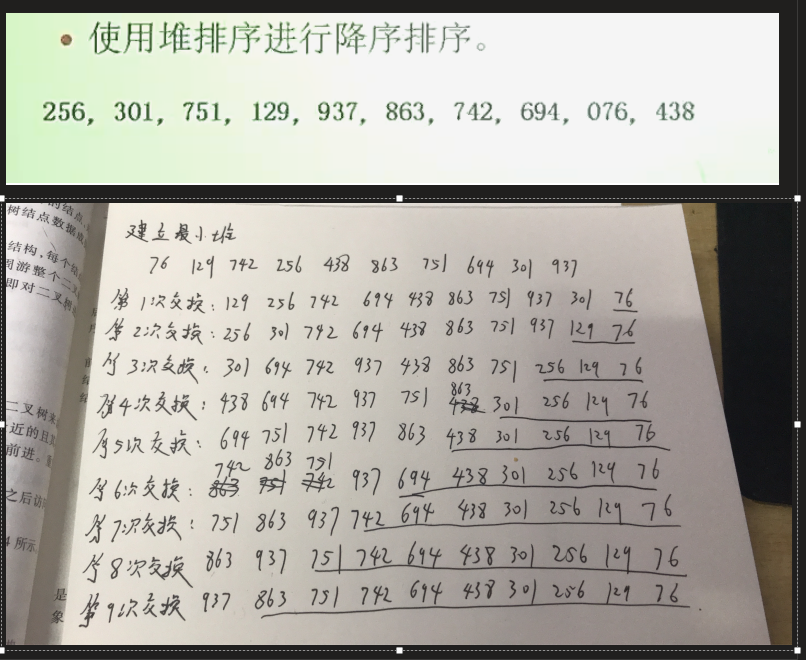 • 使用堆排序进行降序排序。
256, 301, 751, 129, 937, 863, 742, 694, 076, 438
树结点数据
结构,每个
周游整个二
即对二叉
建立最小堆
76 129 742 256 438 863 751 694 301 937
第1次交换: 129 256 742 694 438 863 751 937 301 76
第2次交换: 256 301 742 694 438 863 751 937 129 76
第3次交换: 301 694 742 937 438 863 751 256 129 76
第4次交换: 438 694 742 937 751 863 301 256 129 76
第5次交换: 694 751 742 937 863 438 301 256 129 76
第6次交换: 742 863 751 937 694 438 301 256 129 76
第7次交换: 751 863 937 742 694 438 301 256 129 76
第8次交换 863 937 751 742 694 438 301 256 129 76
第9次交换 937 863 751 742 694 438 301 256 129 76
二叉树来
近的且
前进。
之后访
4 所示
是
象